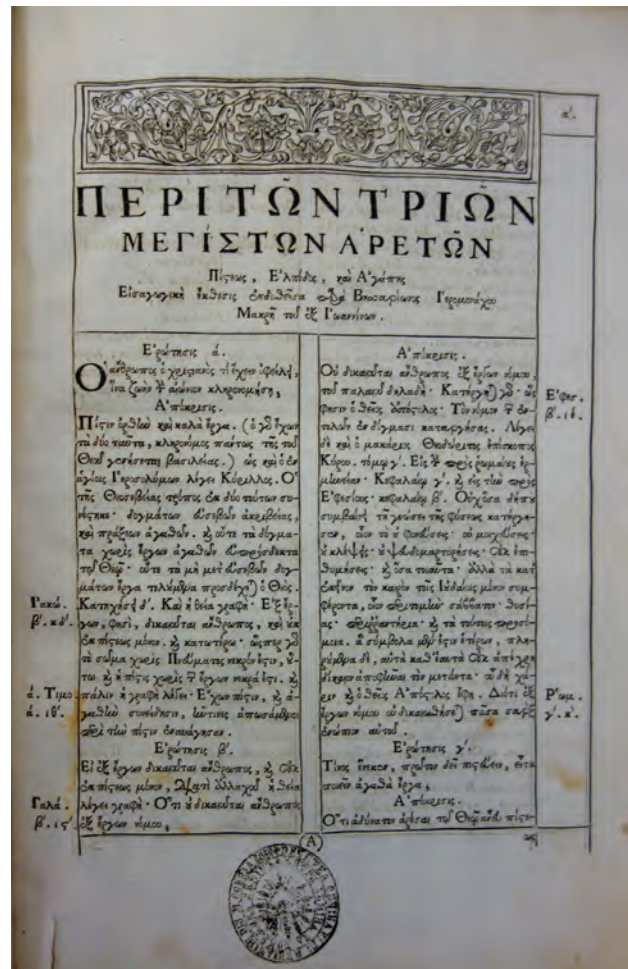 α'.
ΠΕΡΙ ΤΩ͂Ν ΤΡΙΩ͂Ν
ΜΕΓΊΣΤΩΝ ἈΡΕΤΩ͂Ν
Πίςεως, Ἐλπίδος, καὶ Ἀγάπης
Εἰσαγωγικὴ ἔκθεσις ἐκδοθεῖσα παρὰ Βησσαρίωνος Ἱερομονάχου
Μακρῆ τοῦ ἐξ Ἰωαννίνων.
Ἐρώτησις ά.
Ὁ ἄνθρωπος ὁ χριςιανὸς τί ἔχειν ὀφείλῃ,
ἵνα ζωὴν τὴν αἰώνιον κληρονομήσῃ,
Ἀπόκρισις.
Πίςιν ὀρθὴν καὶ καλὰ ἔργα. (ὁ γὰρ ἔχων
τὰ δύο ταῦτα, κληρόνομος πάντως τῆς τοῦ
Θεοῦ γενήσεται βασιλείας.) ὡς καὶ ὁ ἐν
ἁγίοις Ἱεροσολύμων λέγει Κύριλλος. Ὁ
τῆς Θεοσεβείας τρόπος ἐκ δύο τούτων συ-
νέςηκε· δογμάτων εὐσεβῶν ἀκριβείας,
καὶ πράξεων ἀγαθῶν. κ οὔτε τὰ δόγμα-
τα χωρὶς ἔργων ἀγαθῶν εὐπρόσδεκτα
τῷ Θεῷ· οὔτε τὰ μὴ μετ' εὐσεβῶν δογ-
μάτων ἔργα τελούμενα προσδέχεται ὁ Θεός.
Ἰακώ.
β'. κδ'.
Κατηχήσῃ δ'. Καὶ ἡ θεία γραφή· Ἐξ ἔρ-
γων, φησὶ, δικαιοῦται ἄνθρωπος, καὶ οὐκ
ἐκ πίςεως μόνον. κ κατωτέρω· ὥσπερ γὰρ
τὸ σῶμα χωρὶς Πνεύματος νεκρόν ἐςιν, οὕ-
τω κ ἡ πίςις χωρὶς τῶν ἔργων νεκρά ἐςι. κ
ά. Τιμο
ά. ιθ'.
πάλιν ἡ γραφὴ λέγει· Ἔχων πίςιν, κ ἀ-
γαθὴν συνείδησιν, ἥν τινες ἀπωσάμενοι
περὶ τὴν πίςιν ἐναυάγησαν.
Ἐρώτησις β'.
Εἰ ἐξ ἔργων δικαιοῦται ἄνθρωπος, κ οὐκ
ἐκ πίςεως μόνον, διατί ἀλλαχοῦ ἡ θεία
Γαλά.
β'. ις'
λέγει γραφή· Ὅτι οὐ δικαιοῦται ἄνθρωπος
ἐξ ἔργων νόμου,
Ἀπόκρισις.
Οὐ δικαιοῦται ἄνθρωπος ἐξ ἔργων νόμου,
τοῦ παλαιοῦ δηλαδή· Κατήργηται γὰρ· ὥς
Ἐφεσ.
β'. ιε.
φησιν ὁ θεῖος ἀπόςολος· Τὸν νόμον τῶν ἐν-
τολῶν ἐν δόγμασι καταργήσας. Λέγει
δὲ καὶ ὁ μακάριος Θεοδώριτος ἐπίσκοπος
Κύρου. τόμῳ γ'. Εἰς τὴν πρὸς ῥωμαίους ἑρ-
μηνείαν· Κεφαλαίῳ γ'. κ εἰς τὴν πρὸς
Ἐφεσίους· κεφαλαίῳ β'. Οὐχ ὅσα δήπου
συμβαίνῃ τῇ γνώσει τῆς φύσεως κατήργη-
σεν, οἷον τὸ οὐ φονεύσεις· οὐ μοιχεύσεις·
οὐ κλέψῃς· οὐ ψευδομαρτυρήσεις· Οὐκ ἐπι-
θυμήσεις· κ ὅσα τοιαῦτα· ἀλλὰ τὰ κατ'
ἐκεῖνον τὸν καιρὸν τοῖς Ἰουδαίοις μόνον συμ-
φέροντα, οἷον περιτομὴν σάββατον· θυσί-
ας· περιῤῥαντήρια· κ τὰ τούτοις παρό-
μοια. ἃ σύμβολα μέν ἐςιν ἑτέρων, πλη-
ρούμενα δὲ, αὐτὰ καθ' ἑαυτὰ Οὐκ ἀπέχρη
δίκαιον ἀποφῆναι τὸν μετιόντα· οὗ δὴ χά-
Ῥωμ.
γ'. κ'.
ριν κ ὁ θεῖος Ἀπόςολος ἔφη. Διότι ἐξ
ἔργων νόμου οὐ δικαιωθήσεται πᾶσα σὰρξ
ἐνώπιον αὐτοῦ.
Ἐρώτησις γ'.
Τίνος ἕνεκον, πρῶτον δεῖ πιςεύειν, εἶτα
ποιεῖν ἀγαθὰ ἔργα,
Ἀπόκρισις.
Ὅτι ἀδύνατον ἀρέσαι τῷ Θεῷ ἄνευ πίςε-
A